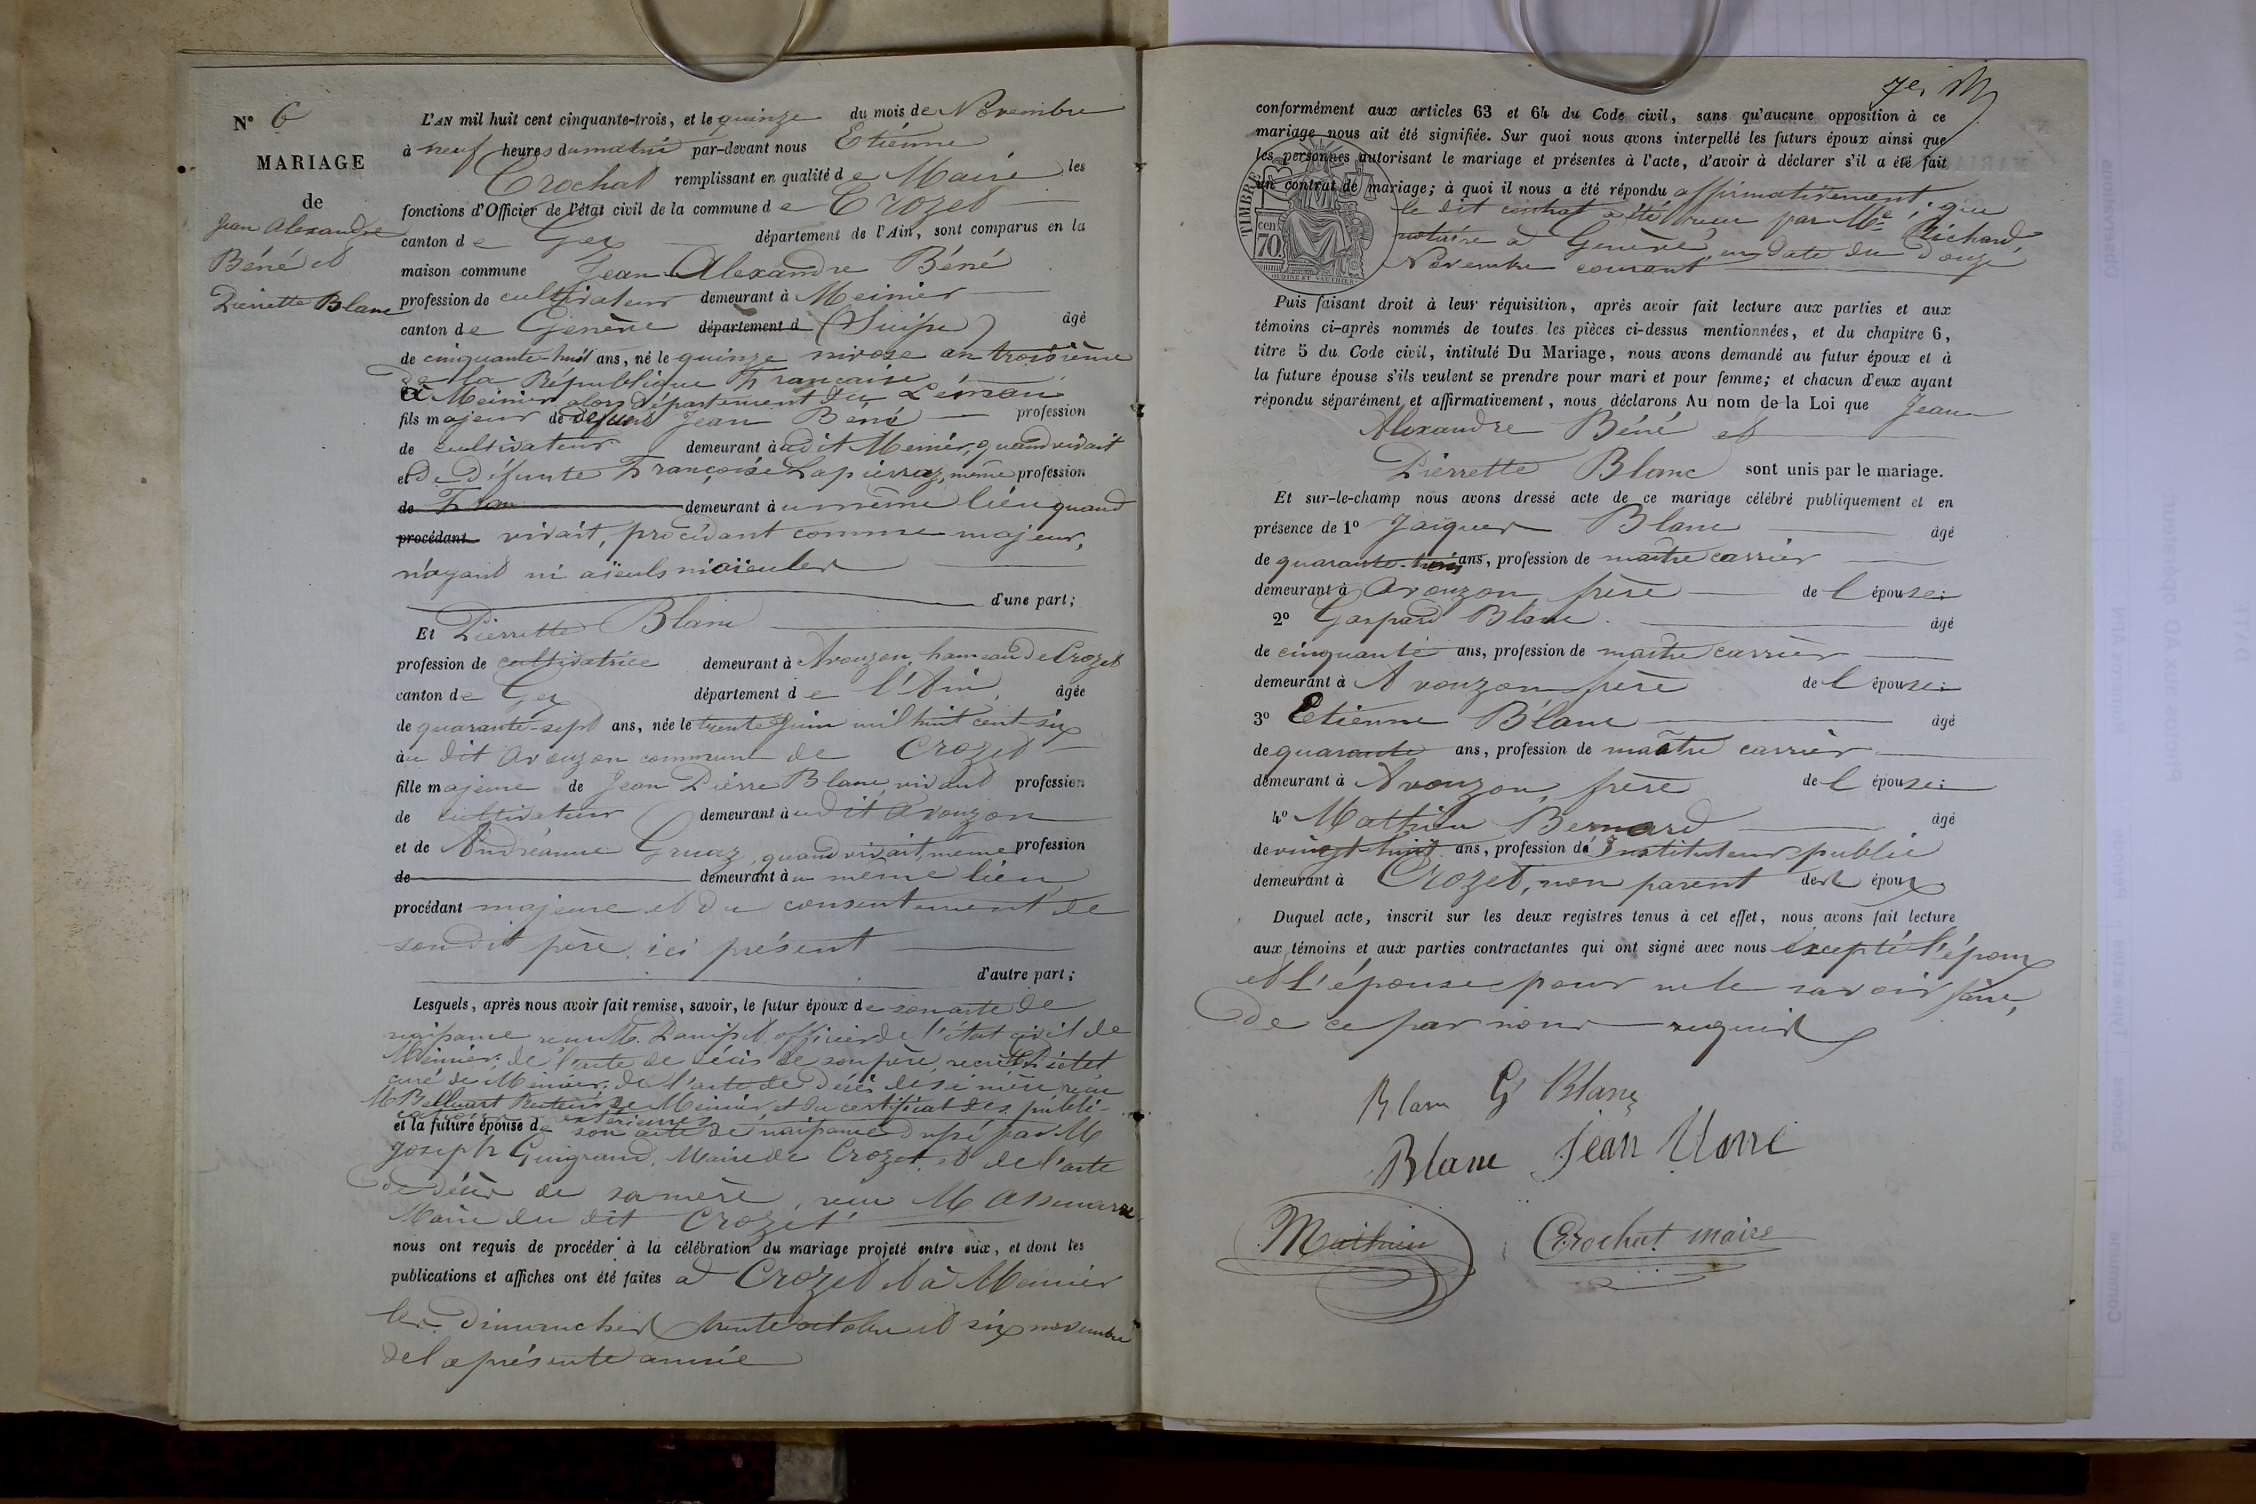 N° 6
MARIAGE
de
Jean Alexandre
Béné et
Pierrette Blanc
L'AN mil huit cent cinquante-trois, et le quinze du mois de Novembre
à neuf heures du matin par-devant nous Etiénne
Crochat remplissant en qualité de Maire les
fonctions d'Officier de l'état civil de la commune de Crozet
canton de Gex département de l'Ain, sont comparus en la
maison commune Jean Alexandre Béné
profession de cultivateur demeurant à Meinier
canton de Genève département d (Suisse) âgé
de cinquante-huit ans, né le quinze nivose an troisième
de la République Française
à Meinier alors département du Léman
fils majeur de défunt Jean Béné profession
de cultivateur demeurant à udit Meinier, quand vivait
et de défunte Françoise Lapierraz, même profession
de demeurant à u même lieu quand
procédant vivait, procédant comme majeur,
n'ayant ni aïeuls ni aïeules
d'une part;
Et Pierrette Blanc
profession de cultivatrice demeurant à Avouzon, hameau de Crozet
canton de Gex département de l'Ain, âgée
de quarante-sept ans, née le trente Juin mil huit cent six
au dit Avouzon commune de Crozet
fille majeure de Jean Pierre Blanc, vivant profession
de cultivateur demeurant à udit Avouzon
et de Andréanne Gruaz, quand vivait, même profession
de demeurant à u même lieu
procédant majeure et du consentement de
son dit père ici présent
d'autre part;
Lesquels, après nous avoir fait remise, savoir, le futur époux de son acte de
naissance reçu M. officier de l'état civil de
Meinier; de l'acte de décès de son père,
curé de Meinier; de l'acte de décès de sa mère reçu
M. de Meinier et du certificat des publi-
cations extérieures
et la future épouse de son acte de naissance dressé par M
Joseph Guigrand, Maire de Crozet et de l'acte
de décès de sa mère, reçu M
Maire du dit Crozet
nous ont requis de procéder à la célébration du mariage projeté entre eux, et dont les
publications et affiches ont été faites à Crozet et à Meinier
les Dimanches trente octobre et six novembre
de la présente année
conformément aux articles 63 et 64 du Code civil, sans qu'aucune opposition à ce
mariage nous ait été signifiée. Sur quoi nous avons interpellé les futurs époux ainsi que
les personnes autorisant le mariage et présentes à l'acte, d'avoir à déclarer s'il a été fait
un contrat de mariage; à quoi il nous a été répondu affirmativement; que
le dit contrat a été reçu par Me Richard,
notaire à Genève, en date du Douze
Novembre courant
TIMBRE
70
Puis faisant droit à leur réquisition, après avoir fait lecture aux parties et aux
témoins ci-après nommés de toutes les pièces ci-dessus mentionnées, et du chapitre 6,
titre 5 du Code civil, intitulé Du Mariage, nous avons demandé au futur époux et à
la future épouse s'ils veulent se prendre pour mari et pour femme; et chacun d'eux ayant
répondu séparément et affirmativement, nous déclarons Au nom de la Loi que Jean
Alexandre Béné et
Pierrette Blanc sont unis par le mariage.
Et sur-le-champ nous avons dressé acte de ce mariage célébré publiquement et en
présence de 1° Jaques Blanc âgé
de quarante-trois ans, profession de maître carrier
demeurant à Avouzon, frère de l'épouse;
2° Gaspard Blanc âgé
de cinquante ans, profession de maître carrier
demeurant à Avouzon frère de l'épouse;
3° Etienne Blanc âgé
de quarante ans, profession de maître carrier
demeurant à Avouzon, frère de l'épouse;
4° Mathieu Bernard âgé
de vingt-huit ans, profession de Instituteur public
demeurant à Crozet, non parent des époux
Duquel acte, inscrit sur les deux registres tenus à cet effet, nous avons fait lecture
aux témoins et aux parties contractantes qui ont signé avec nous excepté l'époux
et l'épouse pour ne le savoir faire,
de ce par nous requis
Blanc G Blanc
Blanc Jean Blanc
Mathieu Crochat maire